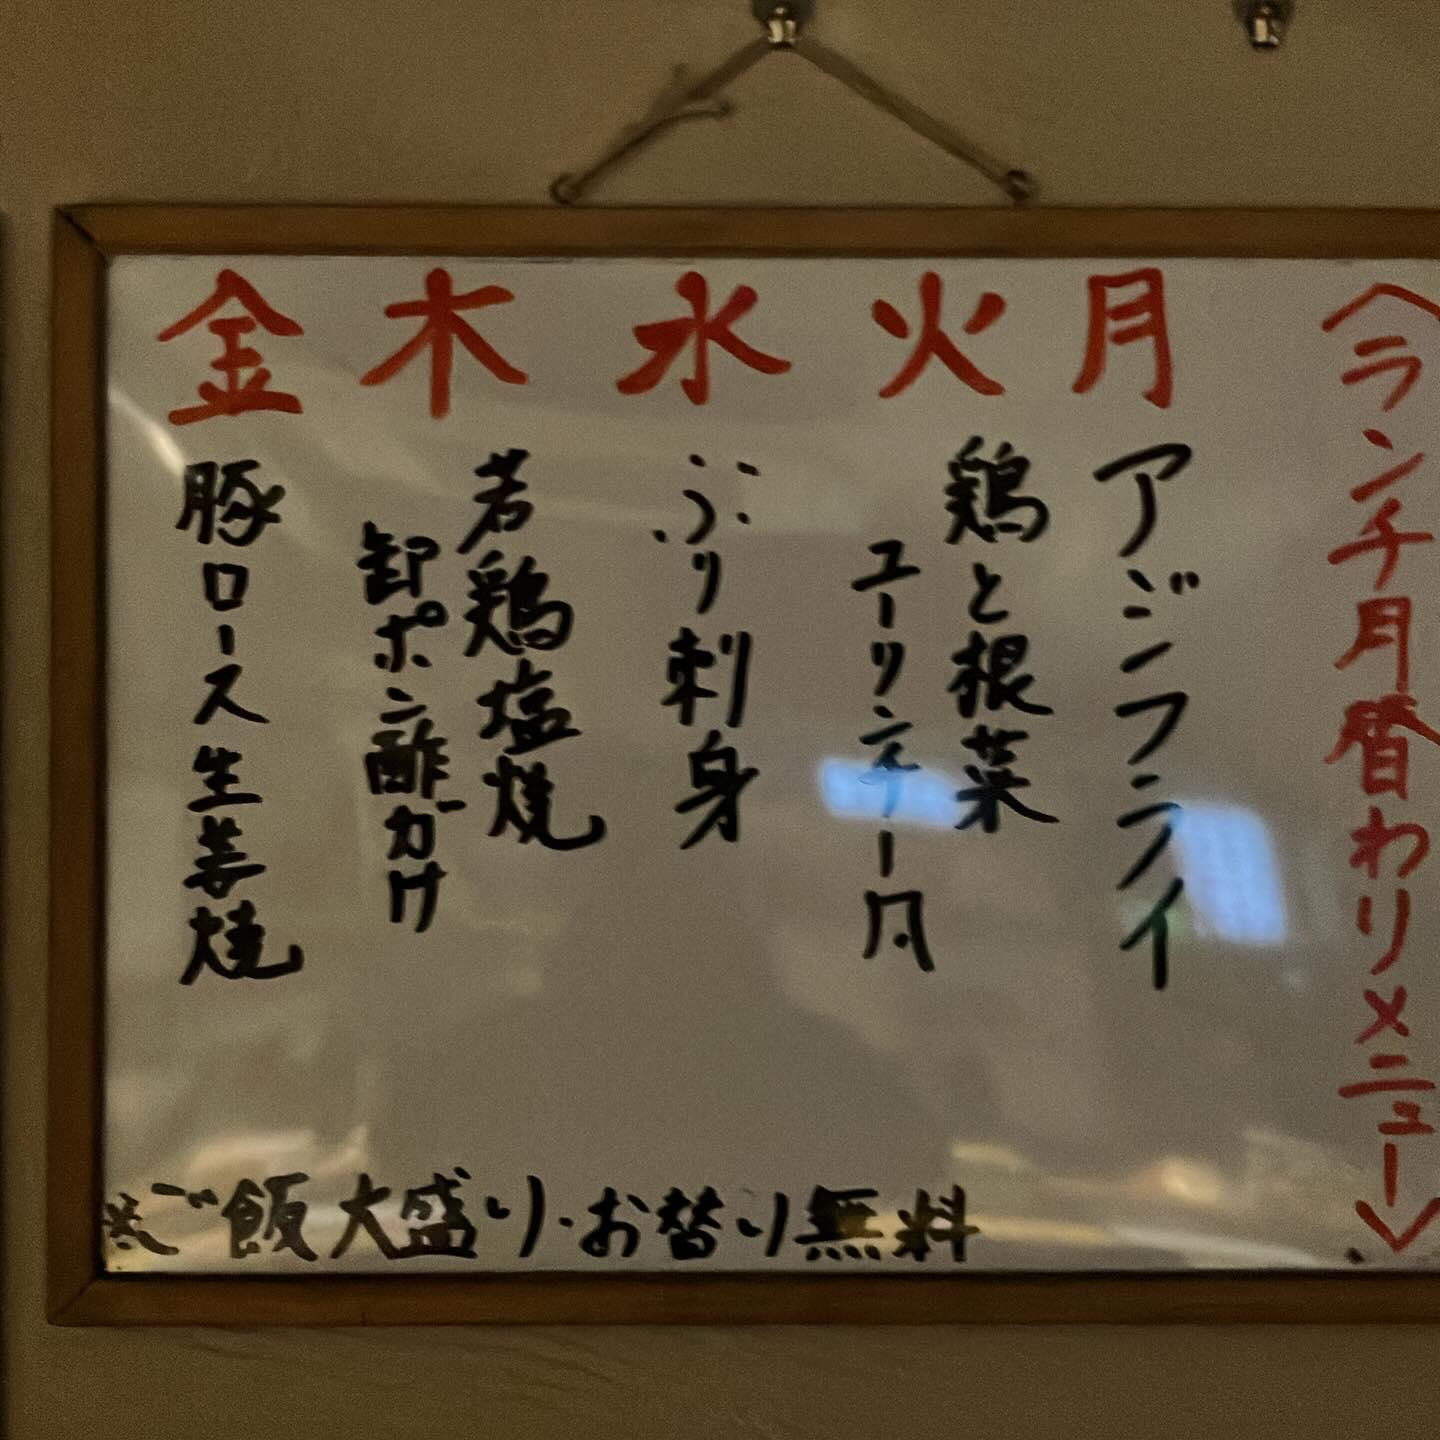 〈ランチ月替わりメニュー〉
月
アジンフライ
火
鶏と根菜
ユーリンチー風
水
ぶり刺身
木
若鶏塩焼
卸ポン酢がけ
金
豚ロース生姜焼
ご飯大盛り・お替り無料